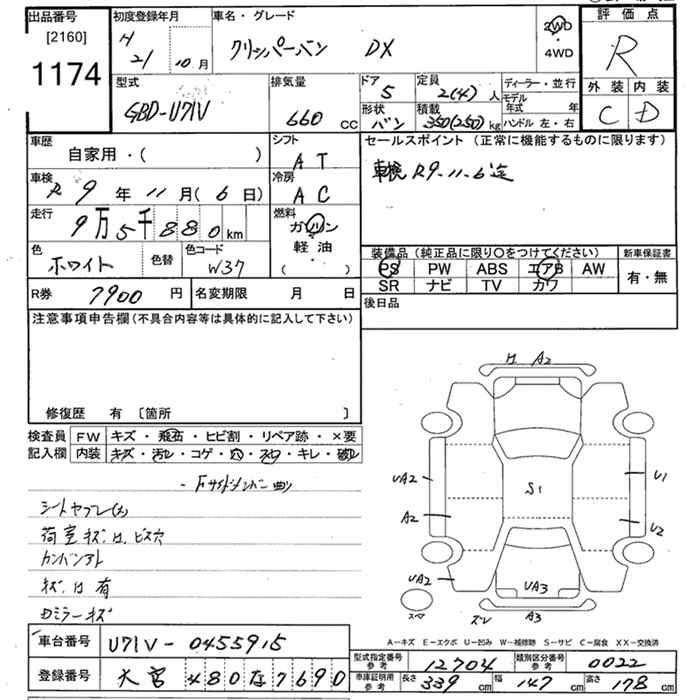 出品番号
[2160]
1174
初度登録年月
H 21 10 月
車名・グレード
クリッパーバン DX
2WD
・
4WD
評価点
R
外装 内装
C D
型式
GBD-U71V
排気量
660 cc
ドア
5
定員
2(4) 人
ディーラー・並行
モデル年式 年
形状
バン
積載
350(250) kg
ハンドル 左・右
車歴
自家用・( )
シフト
AT
セールスポイント (正常に機能するものに限ります)
車検 R9-11-6迄
車検
R 9 年 11 月 ( 6 日)
冷房
AC
走行
9万5千880 km
燃料
ガソリン
軽油
( )
色
ホワイト
色替
色コード
W37
装備品 (純正品に限り○をつけてください)
新車保証書
PS PW ABS エアB AW
有・無
SR ナビ TV カワ
R券 7900 円
名変期限 月 日
後日品
注意事項申告欄 (不具合内容等は具体的に記入して下さい)
修復歴 有 〔箇所 〕
検査員
記入欄
FW キズ・飛石・ヒビ割・リペア跡・×要
内装 キズ・汚レ・コゲ・穴・スワ・キレ・破レ
シートヤブレ(大)
荷室キズ、凹、ビス穴
カンバンアト
キズ、凹有
Dミラーキズ
H A2
UA2
A2
UA2
S1
U1
U2
UA3
A3
スペ
ズレ
A-キズ E-エクボ U-凹み W-補修跡 S-サビ C-腐食 XX-交換済
車台番号 U71V-0455915
登録番号 大宮 480 な 7690
型式指定番号
参考
12704
類別区分番号
参考
0022
車庫証明用
参考
長さ 339 cm 幅 147 cm 高さ 178 cm